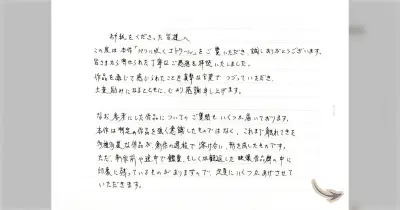 お手紙をくださった皆様へ
この度は本作「パリに咲くエトワール」をご覧いただき、誠にありがとうございます。
皆さまから寄せられた丁寧なご感想を拝読いたしました。
作品を通じて感じられたことを真摯な言葉でつづっていただき、
大変励みになるとともに、心より感謝申し上げます。
なお、参考にした作品についてのご質問もいくつか届いております。
本作は特定の作品を強く意識したものではなく、これまで触れてきた
多種多様な作品が、創作の過程で溶け合い、形を成したものです。
ただ、創作前や途中で鑑賞、もしくは観返した映像作品群の中に
印象に残っているものがありますので、次葉にいくつかあげさせて
いただきます。